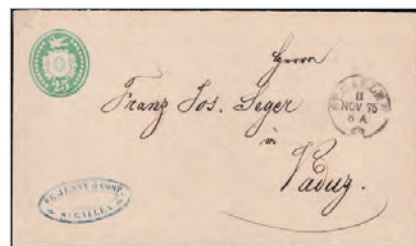 25
Herrn
Franz Jos. Seger
in
Vaduz.
ST. GALLEN
11
NOV 75
8 A
& COMP.
ST. GALLEN